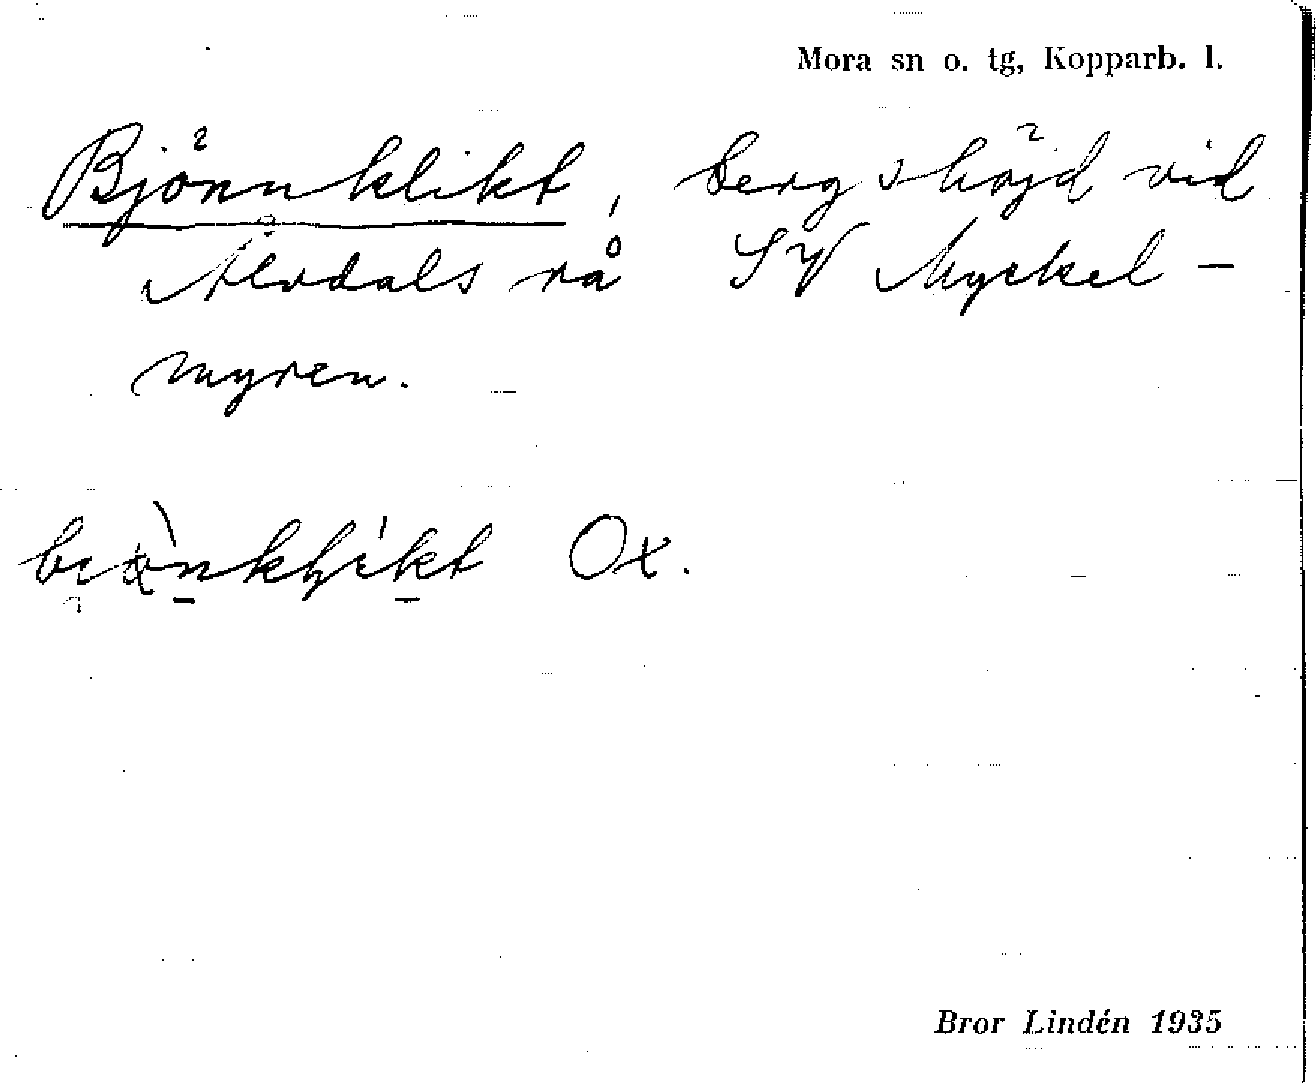 Mora sn o. tg, Kopparb. l.
Björnklikt, bergshöjd vid
Älvdals rå SV Myckel-
myren.
Ox.
Bror Lindén 1935